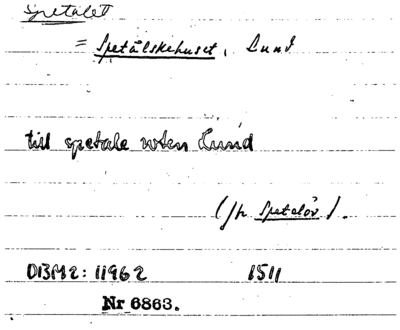 Spetalet
= Spetalskehuset, Lund
till spetale uten Lund
(jfr Spetalör).
DBM2: 11962 1511
Nr 6863.